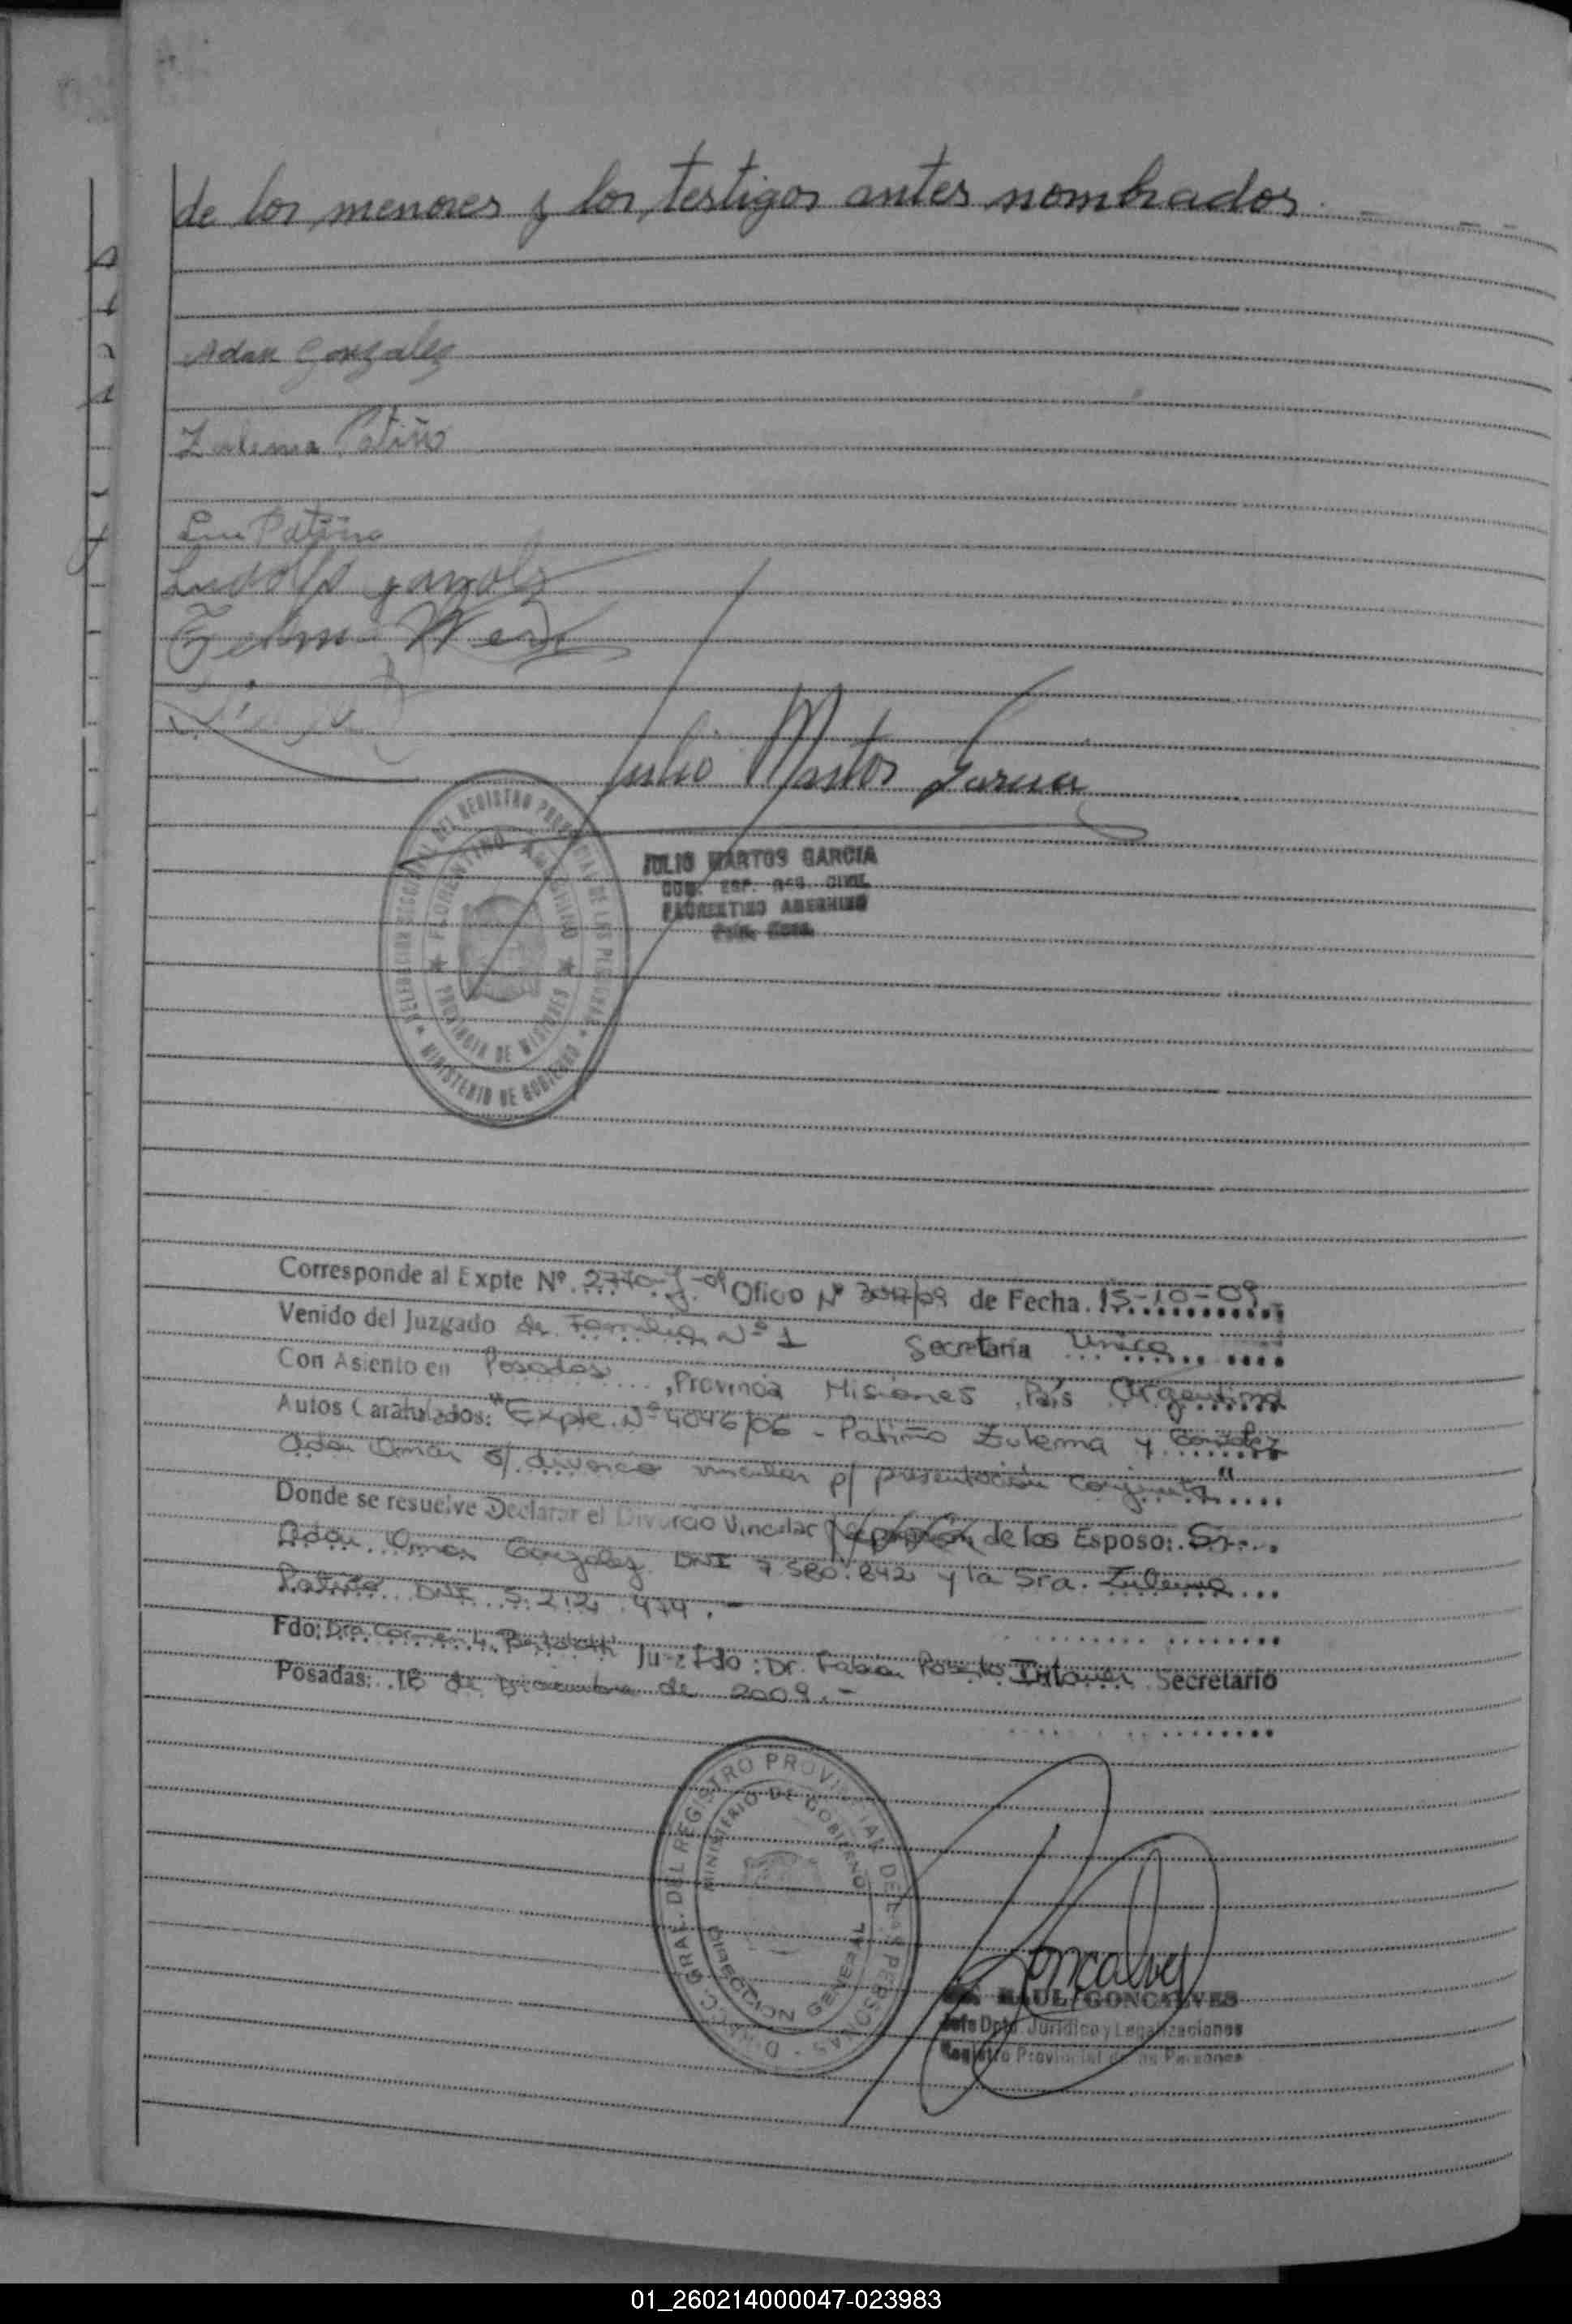 de los menores y los testigos antes nombrados. - - -
Adan Gonzalez
Zulema Patiño
Patiño
Julio Martos Garcia
DELEGACION SECCIONAL DEL REGISTRO PROVINCIAL DE LAS PERSONAS * MINISTERIO DE GOBIERNO *
FLORENTINO AMEGHINO ★ PROVINCIA DE MISIONES ★
JULIO MARTOS GARCIA
ESP. REG. CIVIL
FLORENTINO AMEGHINO
Corresponde al Expte Nº 2770-J-09 Oficio Nº /09 de Fecha 15-10-09
Venido del Juzgado de Familia Nº 1 Secretaría Unica
Con Asiento en Posadas, Provincia Misiones País Argentina
Autos Caratulados: "Expte. Nº 4046/06 - Patiño Zulema y González
Adan Omar s/ divorcio vincular p/ presentación conjunta"
Donde se resuelve Declarar el Divorcio Vincular de los Esposo: Sr.
Adan Omar Gonzalez DNI 7.580.842 y la Sra. Zulema
Patiño DNI 5.212.474.-
Fdo: Dra. Carmen L. Juez fdo: Dr. Fabian Secretario
Posadas: 18 de Diciembre de 2009.-
DIRECC. GRAL. DEL REGISTRO PROVINCIAL DE LAS PERSONAS
MINISTERIO DE GOBIERNO
DIRECCION GENERAL
Goncalves
RAUL GONCALVES
Jefe Dpto. Jurídico y Legalizaciones
Registro Provincial de las Personas
01_260214000047-023983